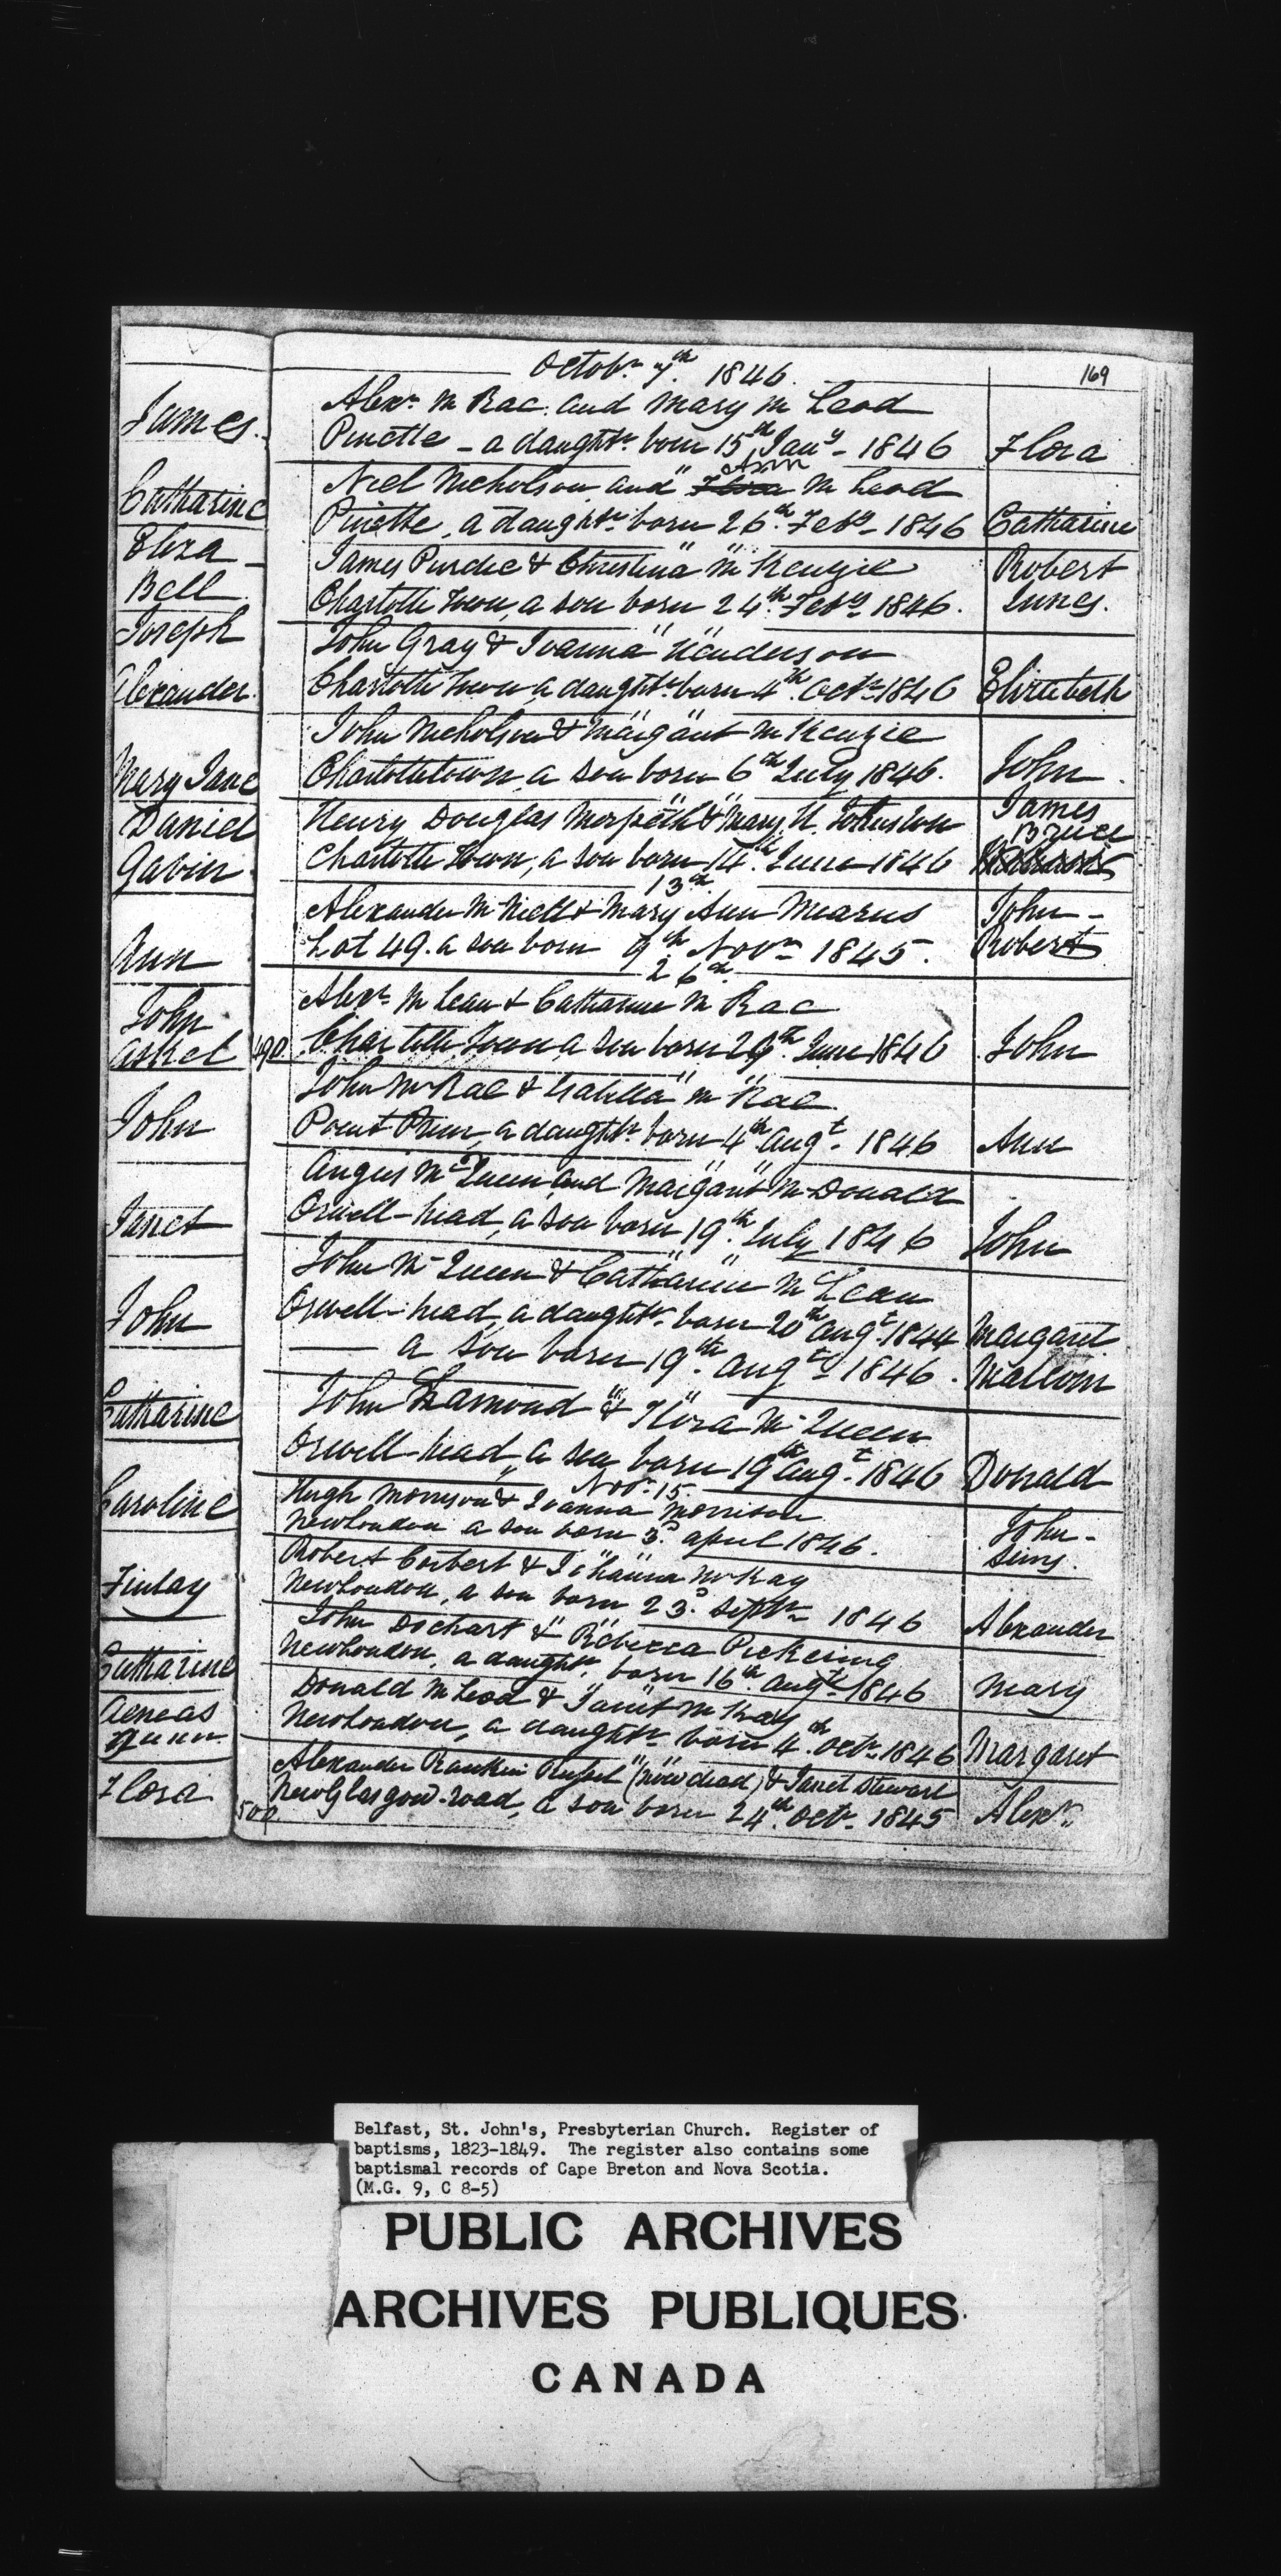 Octobr. 7th. 1846.
169
James.
Alexr. Mc Rae. and Mary Mc Leod
Pinette - a daughtr. born 15th Jany. 1846 Flora
Ann
Catharine
Niel Nicholson and Flora Mc Leod
Pinette, a daughtr. born 26th. Feby. 1846 Catharine
Eliza
Bell
James Purdie & Christina Mc Kenzie Robert
Charlotte Town, a son born 24th. Feby. 1846. Innes.
Joseph
John Gray & Joanna Henderson
Alexander.
Charlotte Town, a daughtr. born 4th. Octr. 1846 Elizabeth
John Nicholson & Margaret Mc Kenzie
Mary Jane
Charlottetown, a son born 6th July 1846. John.
Daniel
Henry Douglas Morpeth & Mary H. Johnston James
Bruce
Gavin.
Charlotte Town, a son born 14th. June 1846
13th.
Alexander Mc Niell & Mary Ann Mearns John -
Ann
Lot 49. a son born 9th Novr. 1845. Robert
26th.
John
Alexr. Mc Lean & Catharine Mc Rae
490 Charlotte Town, a son born 29th. June 1846 John
John McRae & Isabella Mc Rae
John
Point Prim, a daughtr. born 4th Augt. 1846 Ann
Angus Mc Queen and Margaret Mc Donald
Janet
Orwell-head, a son born 19th. July 1846 John
John Mc Queen & Catharine Mc Lean
John
Orwell-head, a daughtr. born 20th Augt. 1844 Margaret
a son born 19th. Augt. 1846. Malcom
Catharine
John Lamond & Flora Mc Queen
Orwell-head, a son born 19th Augt. 1846 Donald
Novr. 15.
Caroline
Hugh Morrison & Joanna Morrison John -
New London a son born 3d. April 1846. Sims.
Robert Corbert & Johanna McKay
Finlay
New London, a son born 23d. Septr. 1846 Alexander
John Dochart & Rebecca Pickering
Catharine
New London, a daughtr. born 16th. Augt. 1846 Mary
Donald Mc Leod & Janet Mc Kay
Aeneas
New London, a daughtr. born 4th. Octr. 1846 Margaret
Alexander Rankin Russel (now dead) & Janet Stewart
Flora
500 New Glasgow-road, a son born 24th. Octr. 1845 Alexr.
Belfast, St. John's, Presbyterian Church. Register of
baptisms, 1823-1849. The register also contains some
baptismal records of Cape Breton and Nova Scotia.
(M.G. 9, C 8-5)
PUBLIC ARCHIVES
ARCHIVES PUBLIQUES
CANADA